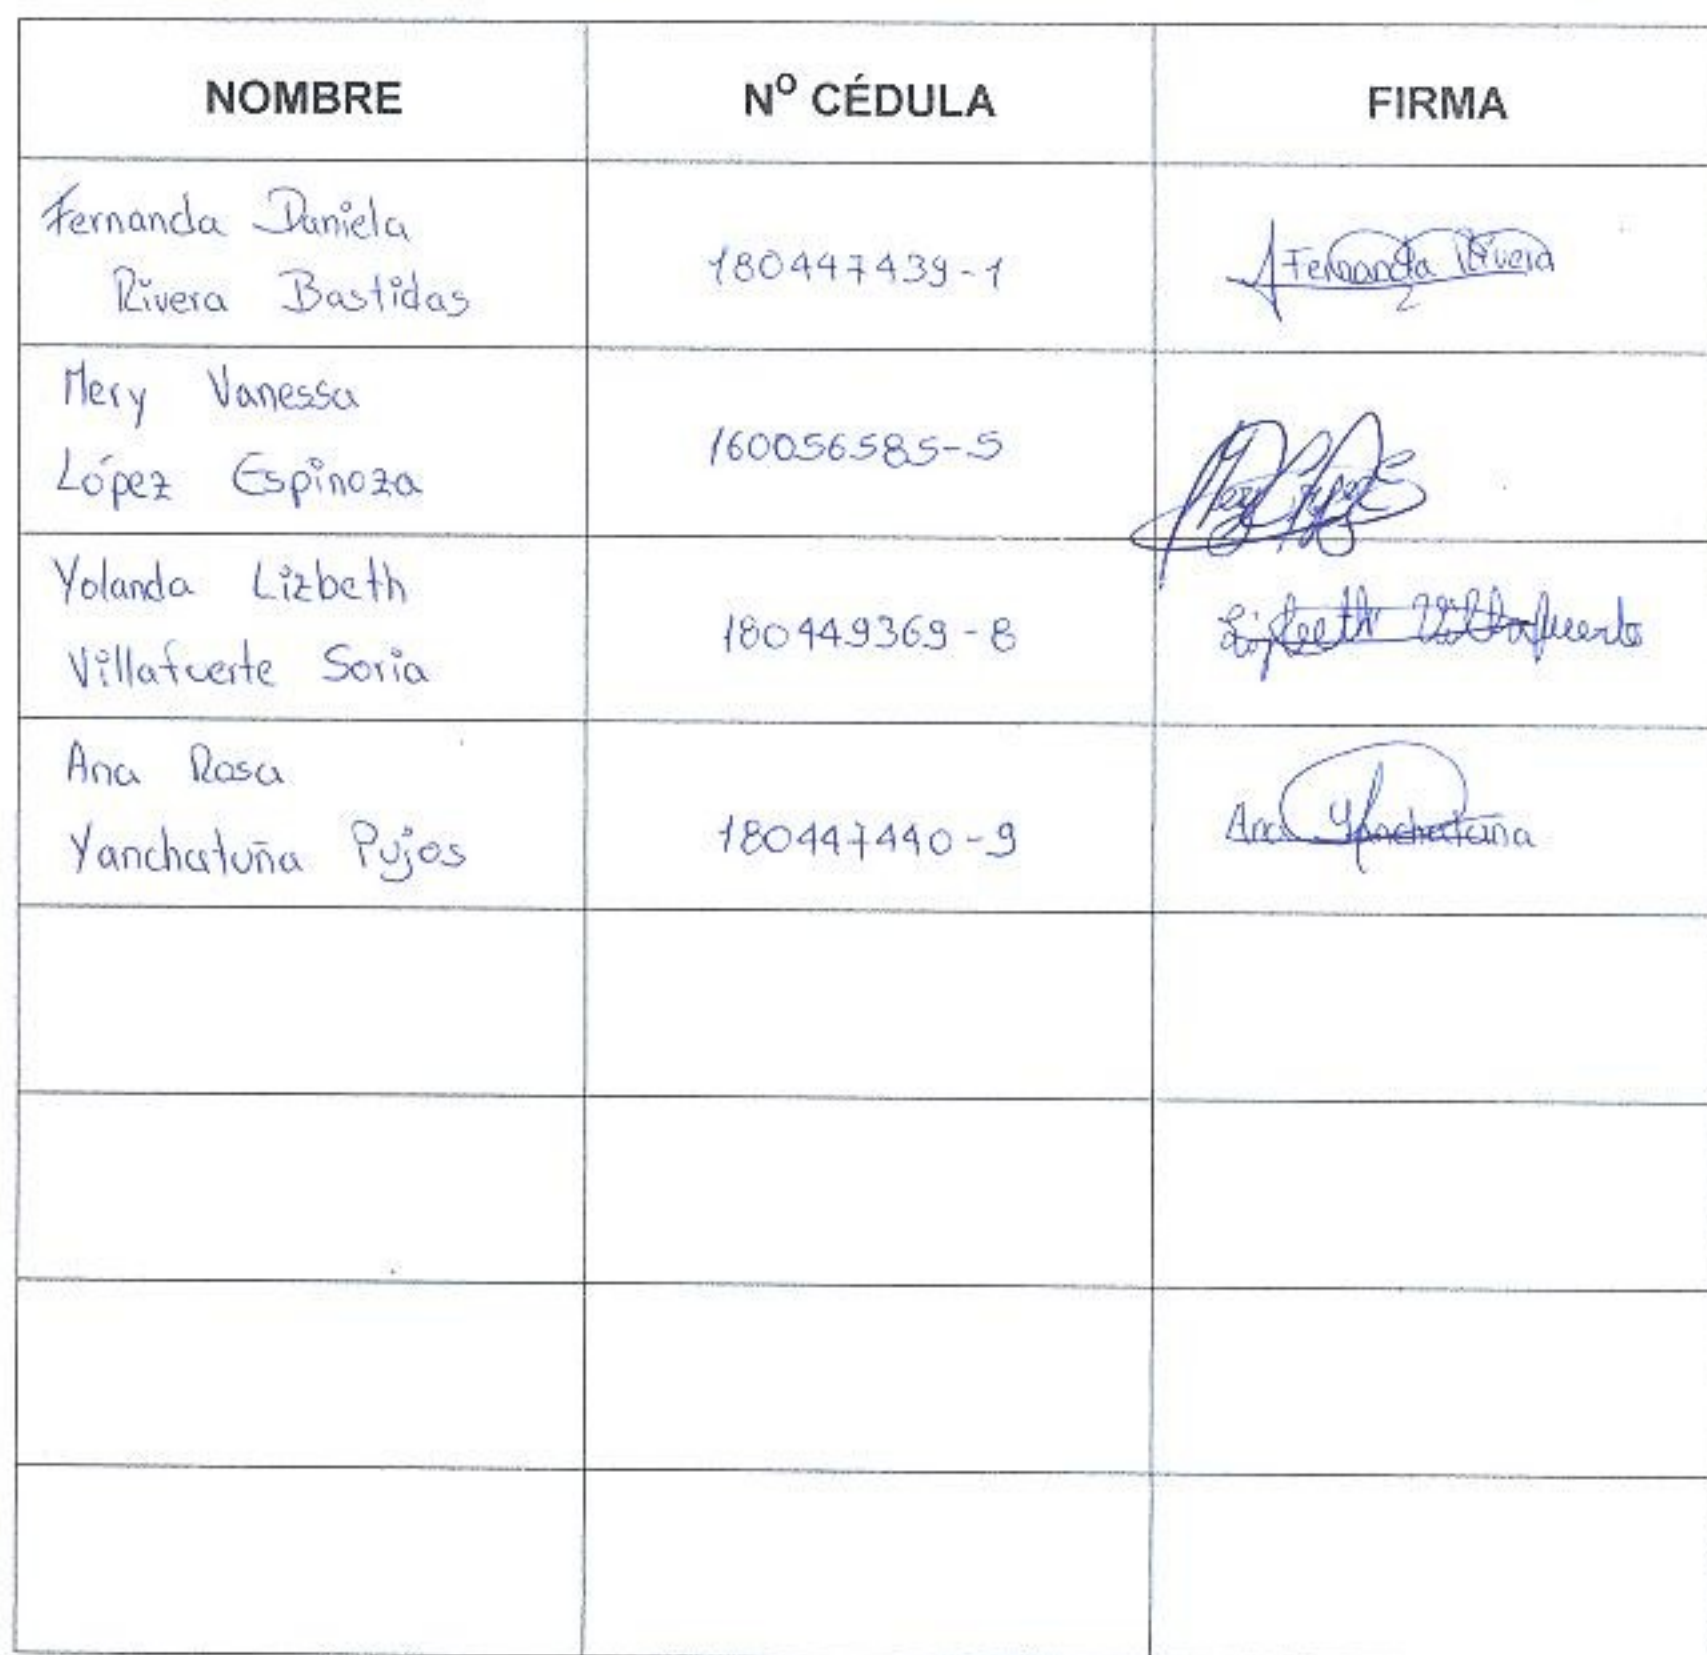 NOMBRE Nº CÉDULA FIRMA
Fernanda Daniela
Rivera Bastidas
180447439-1
Fernanda Rivera
Mery Vanessa
López Espinoza
160056585-5
Yolanda Lizbeth
Villafuerte Soria
180449369-8
Lizbeth Villafuerte
Ana Rosa
Yanchatuña Pujos
180447440-9
Ana Yanchatuña